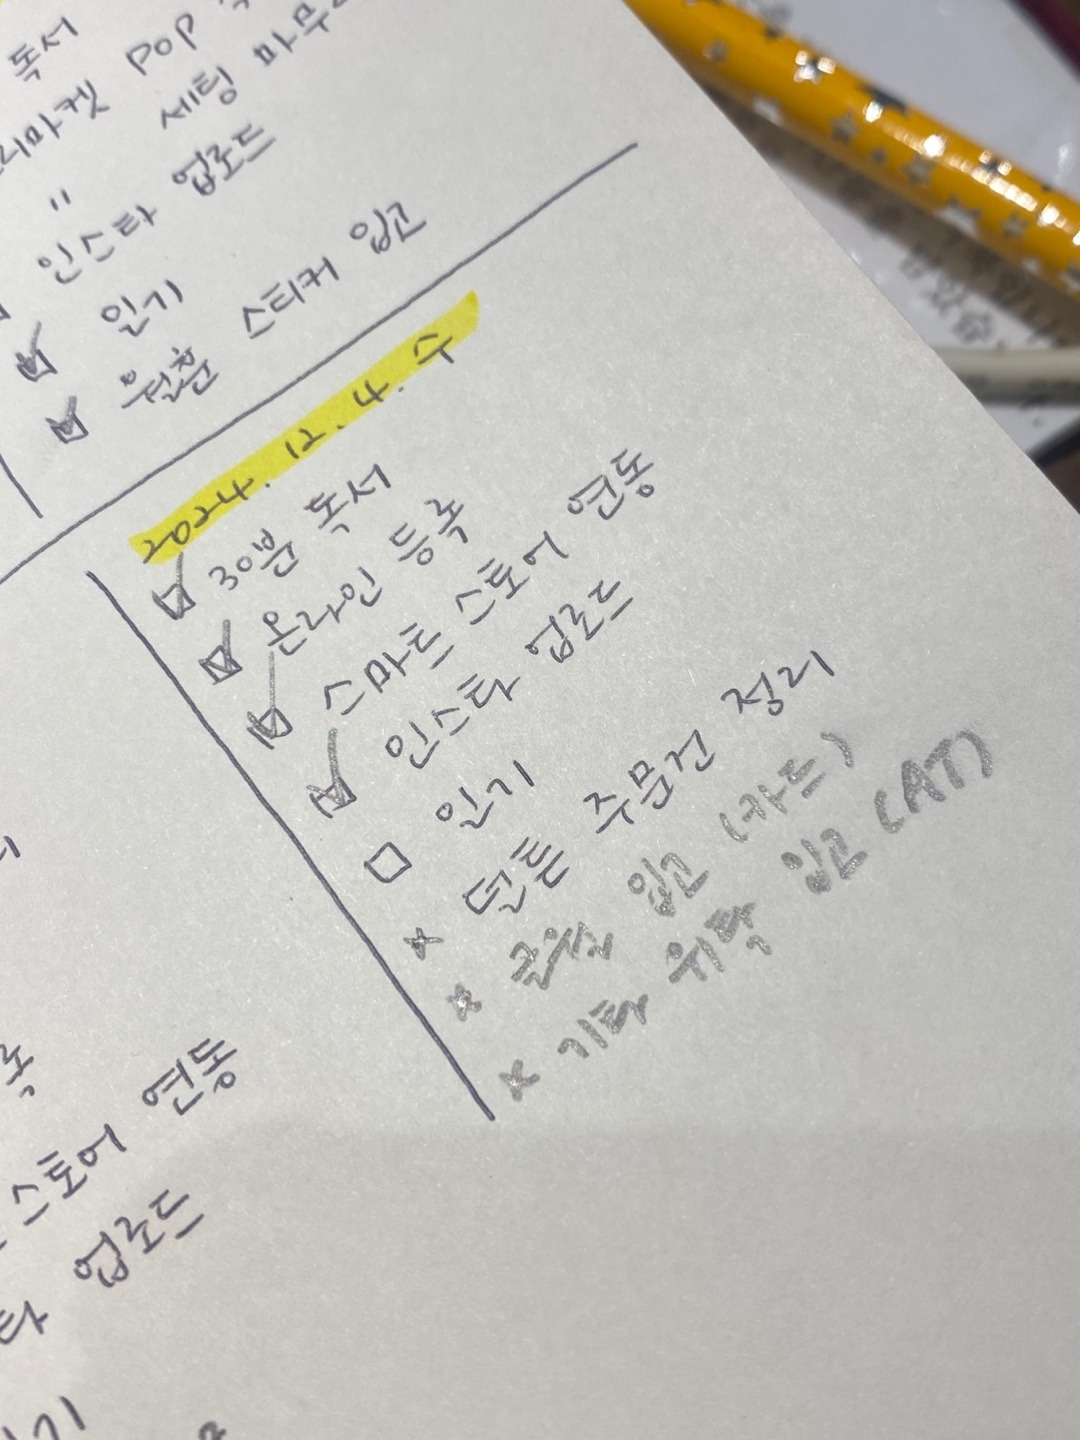 독서
마켓 POP
" 세팅 마무
인스타 업로드
일기
원츈 스티커 입고
2024. 12. 4. 수
30분 독서
온라인 등록
스마트 스토어 연동
인스타 업로드
일기
던튼 주문건 정리
입고 (카드)
기타 위탁 입고 (AT)
스토어 연동
업로드